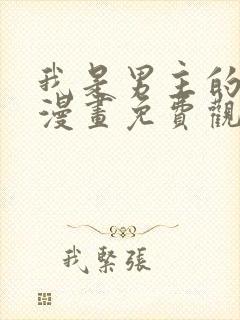 我是男主的
漫畫免費觀
我緊張